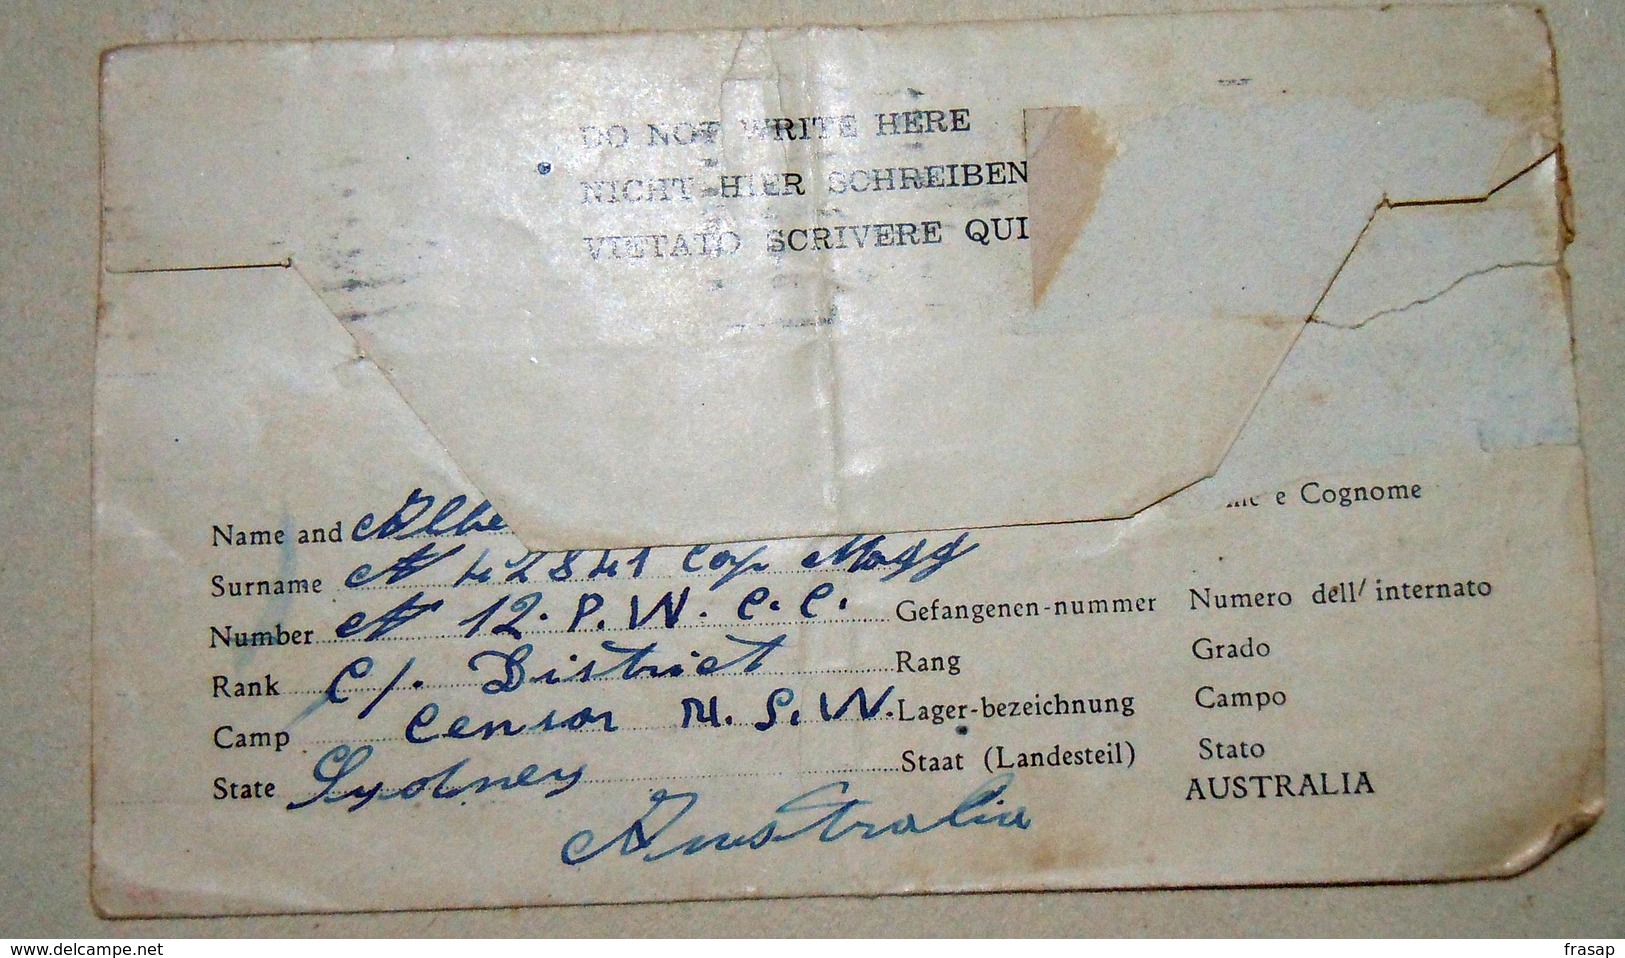 DO NOT WRITE HERE
NICHT HIER SCHREIBEN
VIETATO SCRIVERE QUI
Name and Albe e Cognome
Surname N 42841 Cap Magg
Number N 12. P. W. C. C. Gefangenen-nummer Numero dell' internato
Rank C/. District Rang Grado
Camp Censor N. S. W. Lager-bezeichnung Campo
State Sydney Staat (Landesteil) Stato
AUSTRALIA
Australia
www.delcampe.net frasap